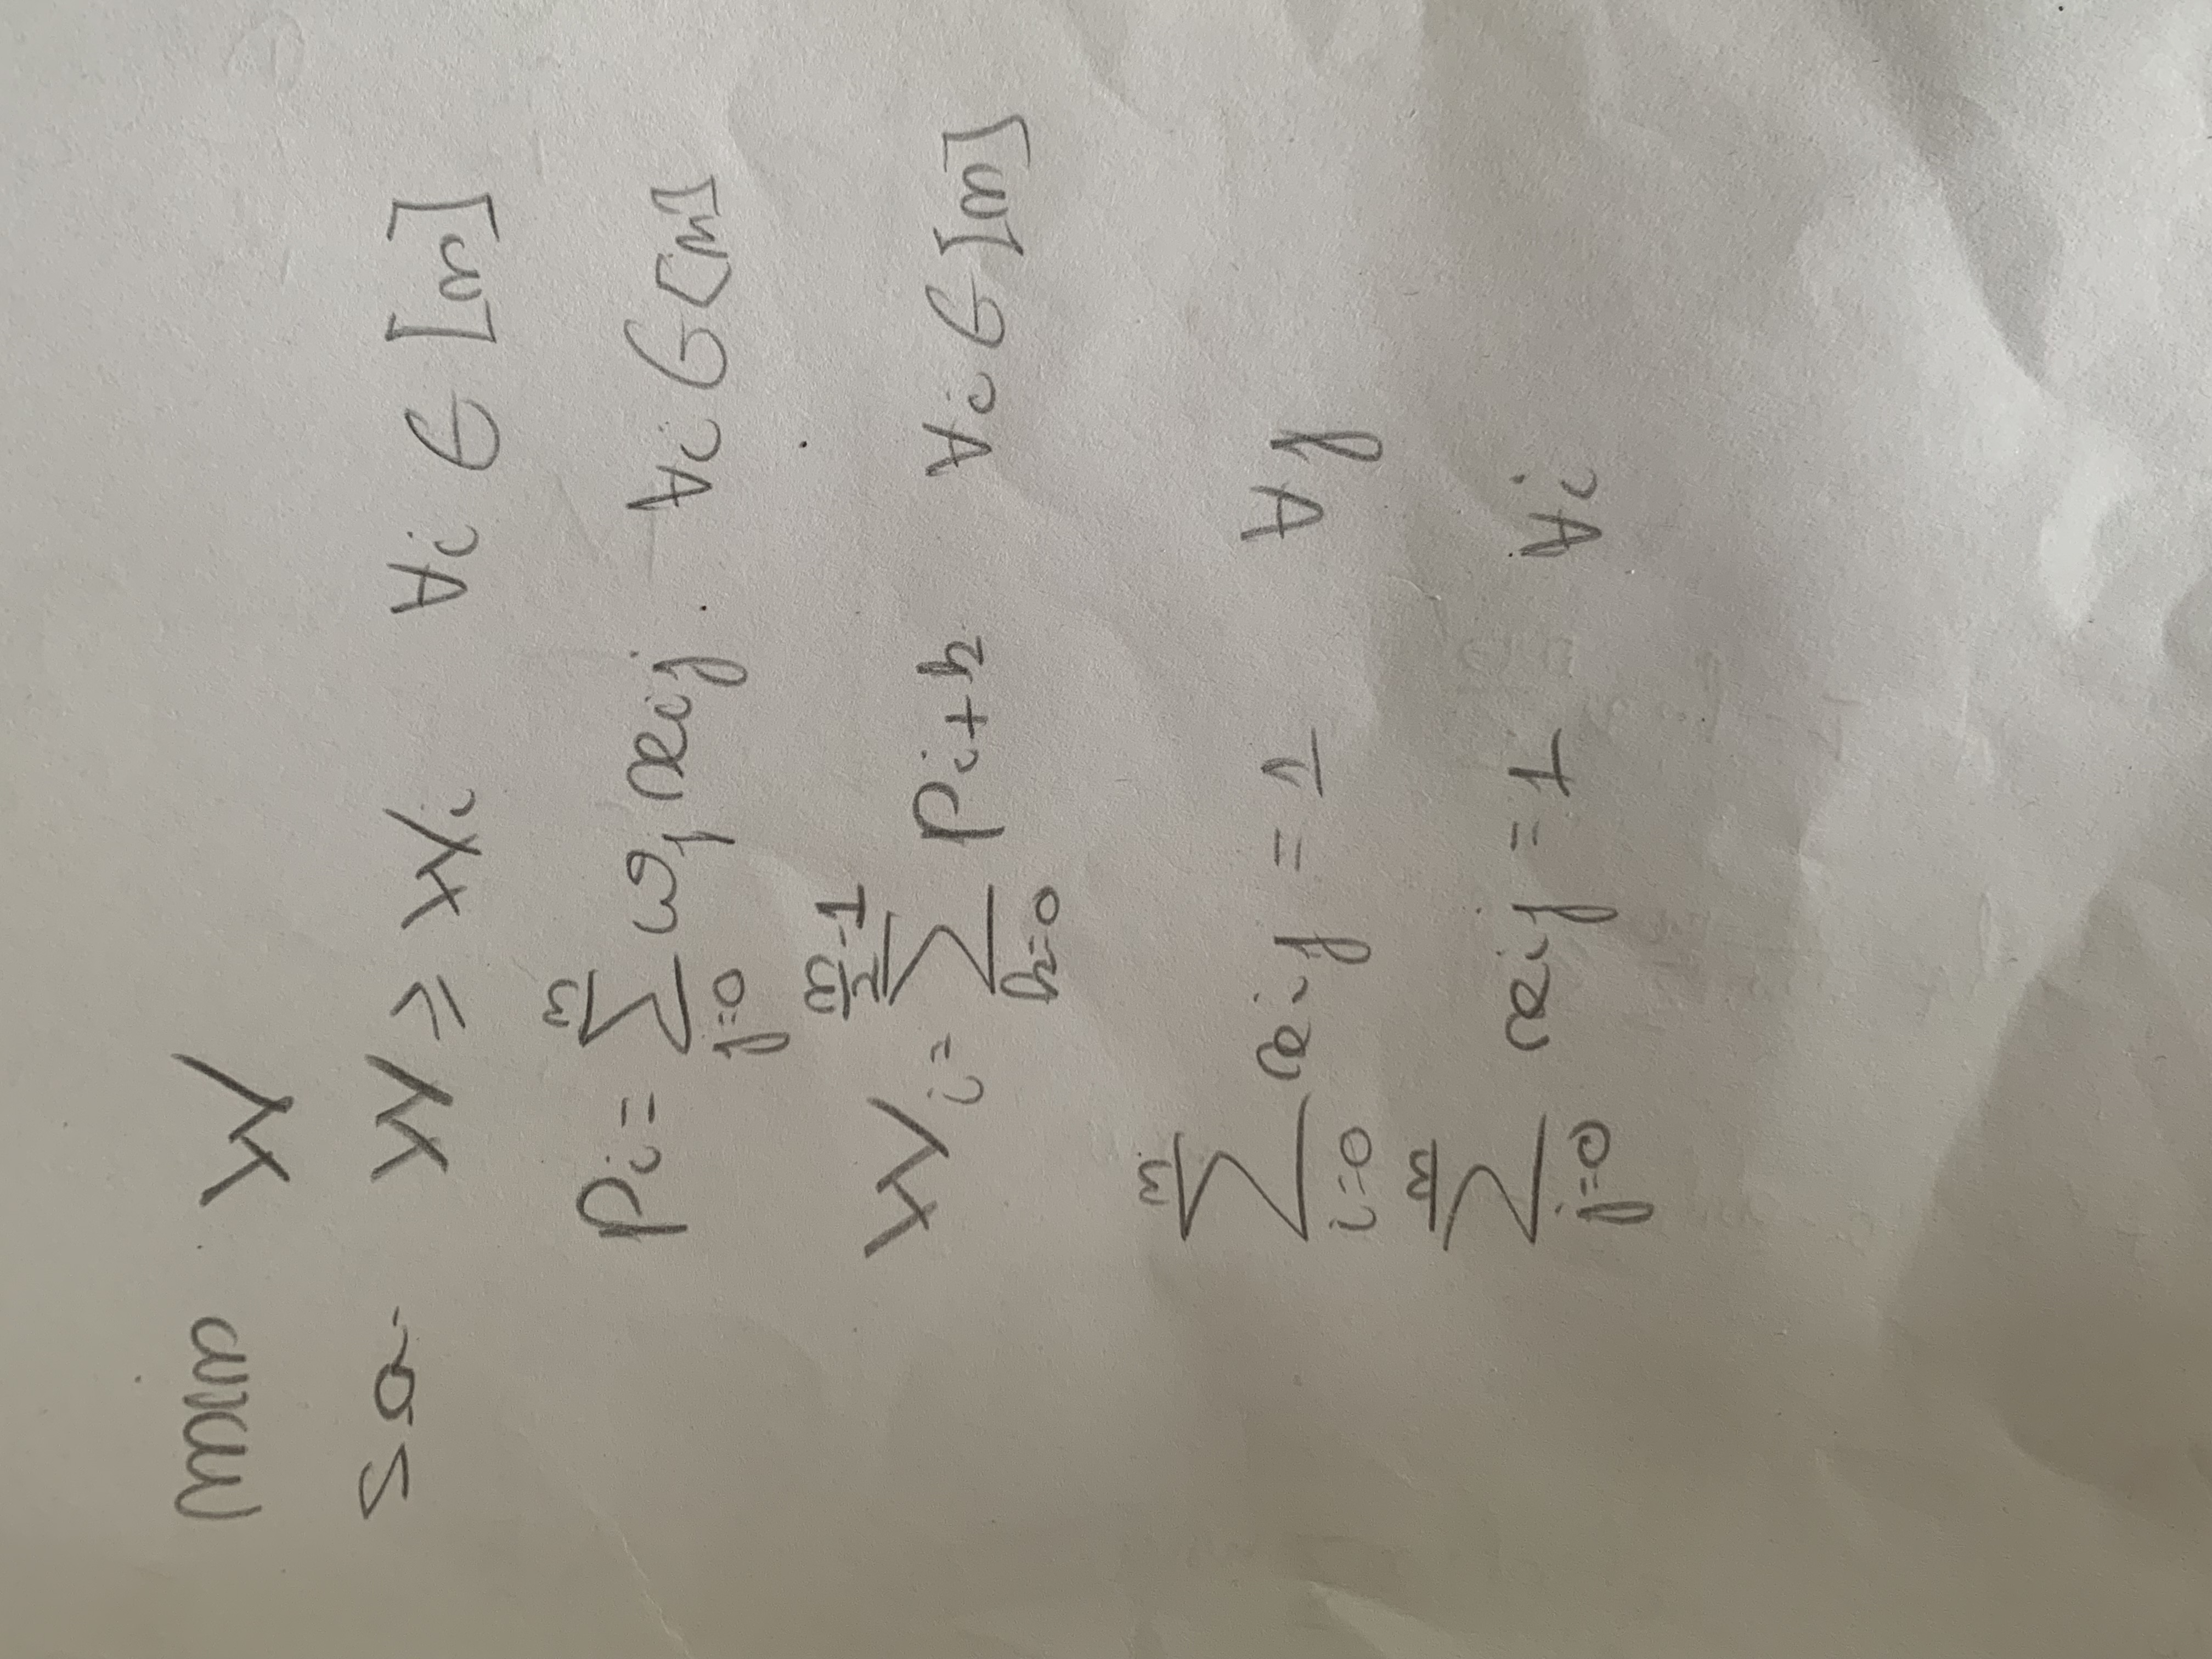 min W
s.a. W ≥ W_i ∀i ∈ [n]
p_i = ∑_{j=0}^{n} ω_j x_{ij} . ∀i ∈ [n]
W_i = ∑_{k=0}^{n/2 - 1} p_{i+k} ∀i ∈ [n]
∑_{i=0}^{n} x_{ij} = 1 ∀j
∑_{j=0}^{n} x_{ij} = 1 ∀i